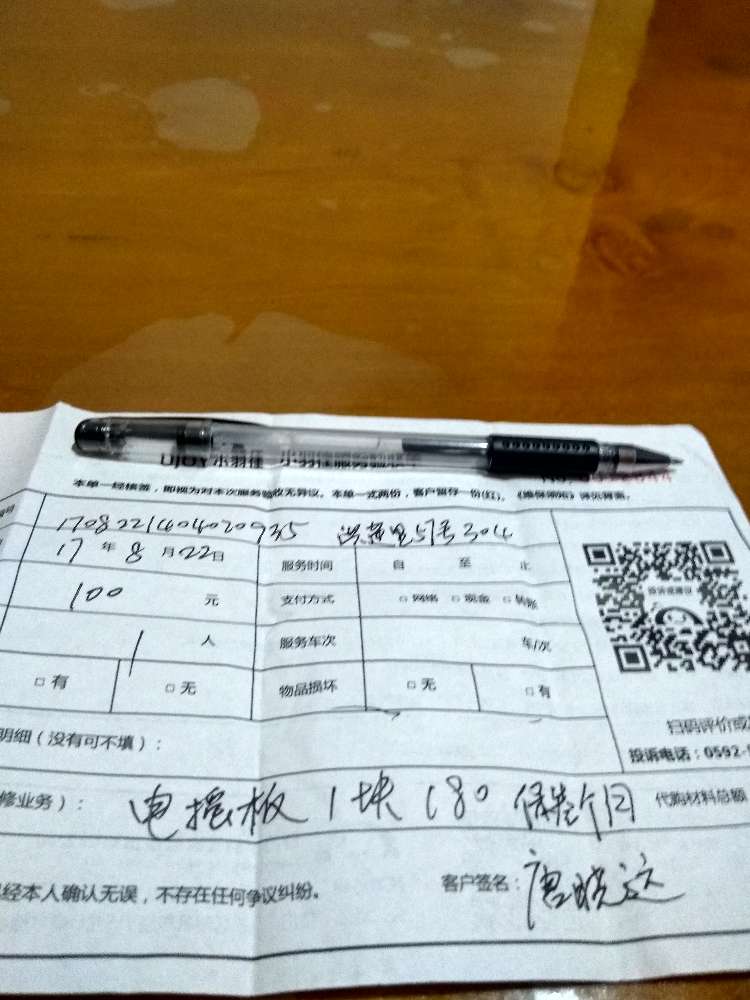 UJOY 小羽佳 小羽佳服务验收单
本单一经接签，即视为对本次服务验收无异议。本单一式两份，客户留存一份(红)。《维保须知》详见背面。
1708221404020935
304
17 年 8 月 22 日 服务时间 自 至 止
100 元 支付方式 □ 网络 □ 现金 □ 转账
1 人 服务车次 车/次
□ 有 □ 无 物品损坏 □ 无 □ 有
扫码评价或
明细（没有可不填）：
投诉电话：0592-
修业务）： 电 板 1块 180 保 个月 代购材料总额
经本人确认无误，不存在任何争议纠纷。
客户签名：唐晓